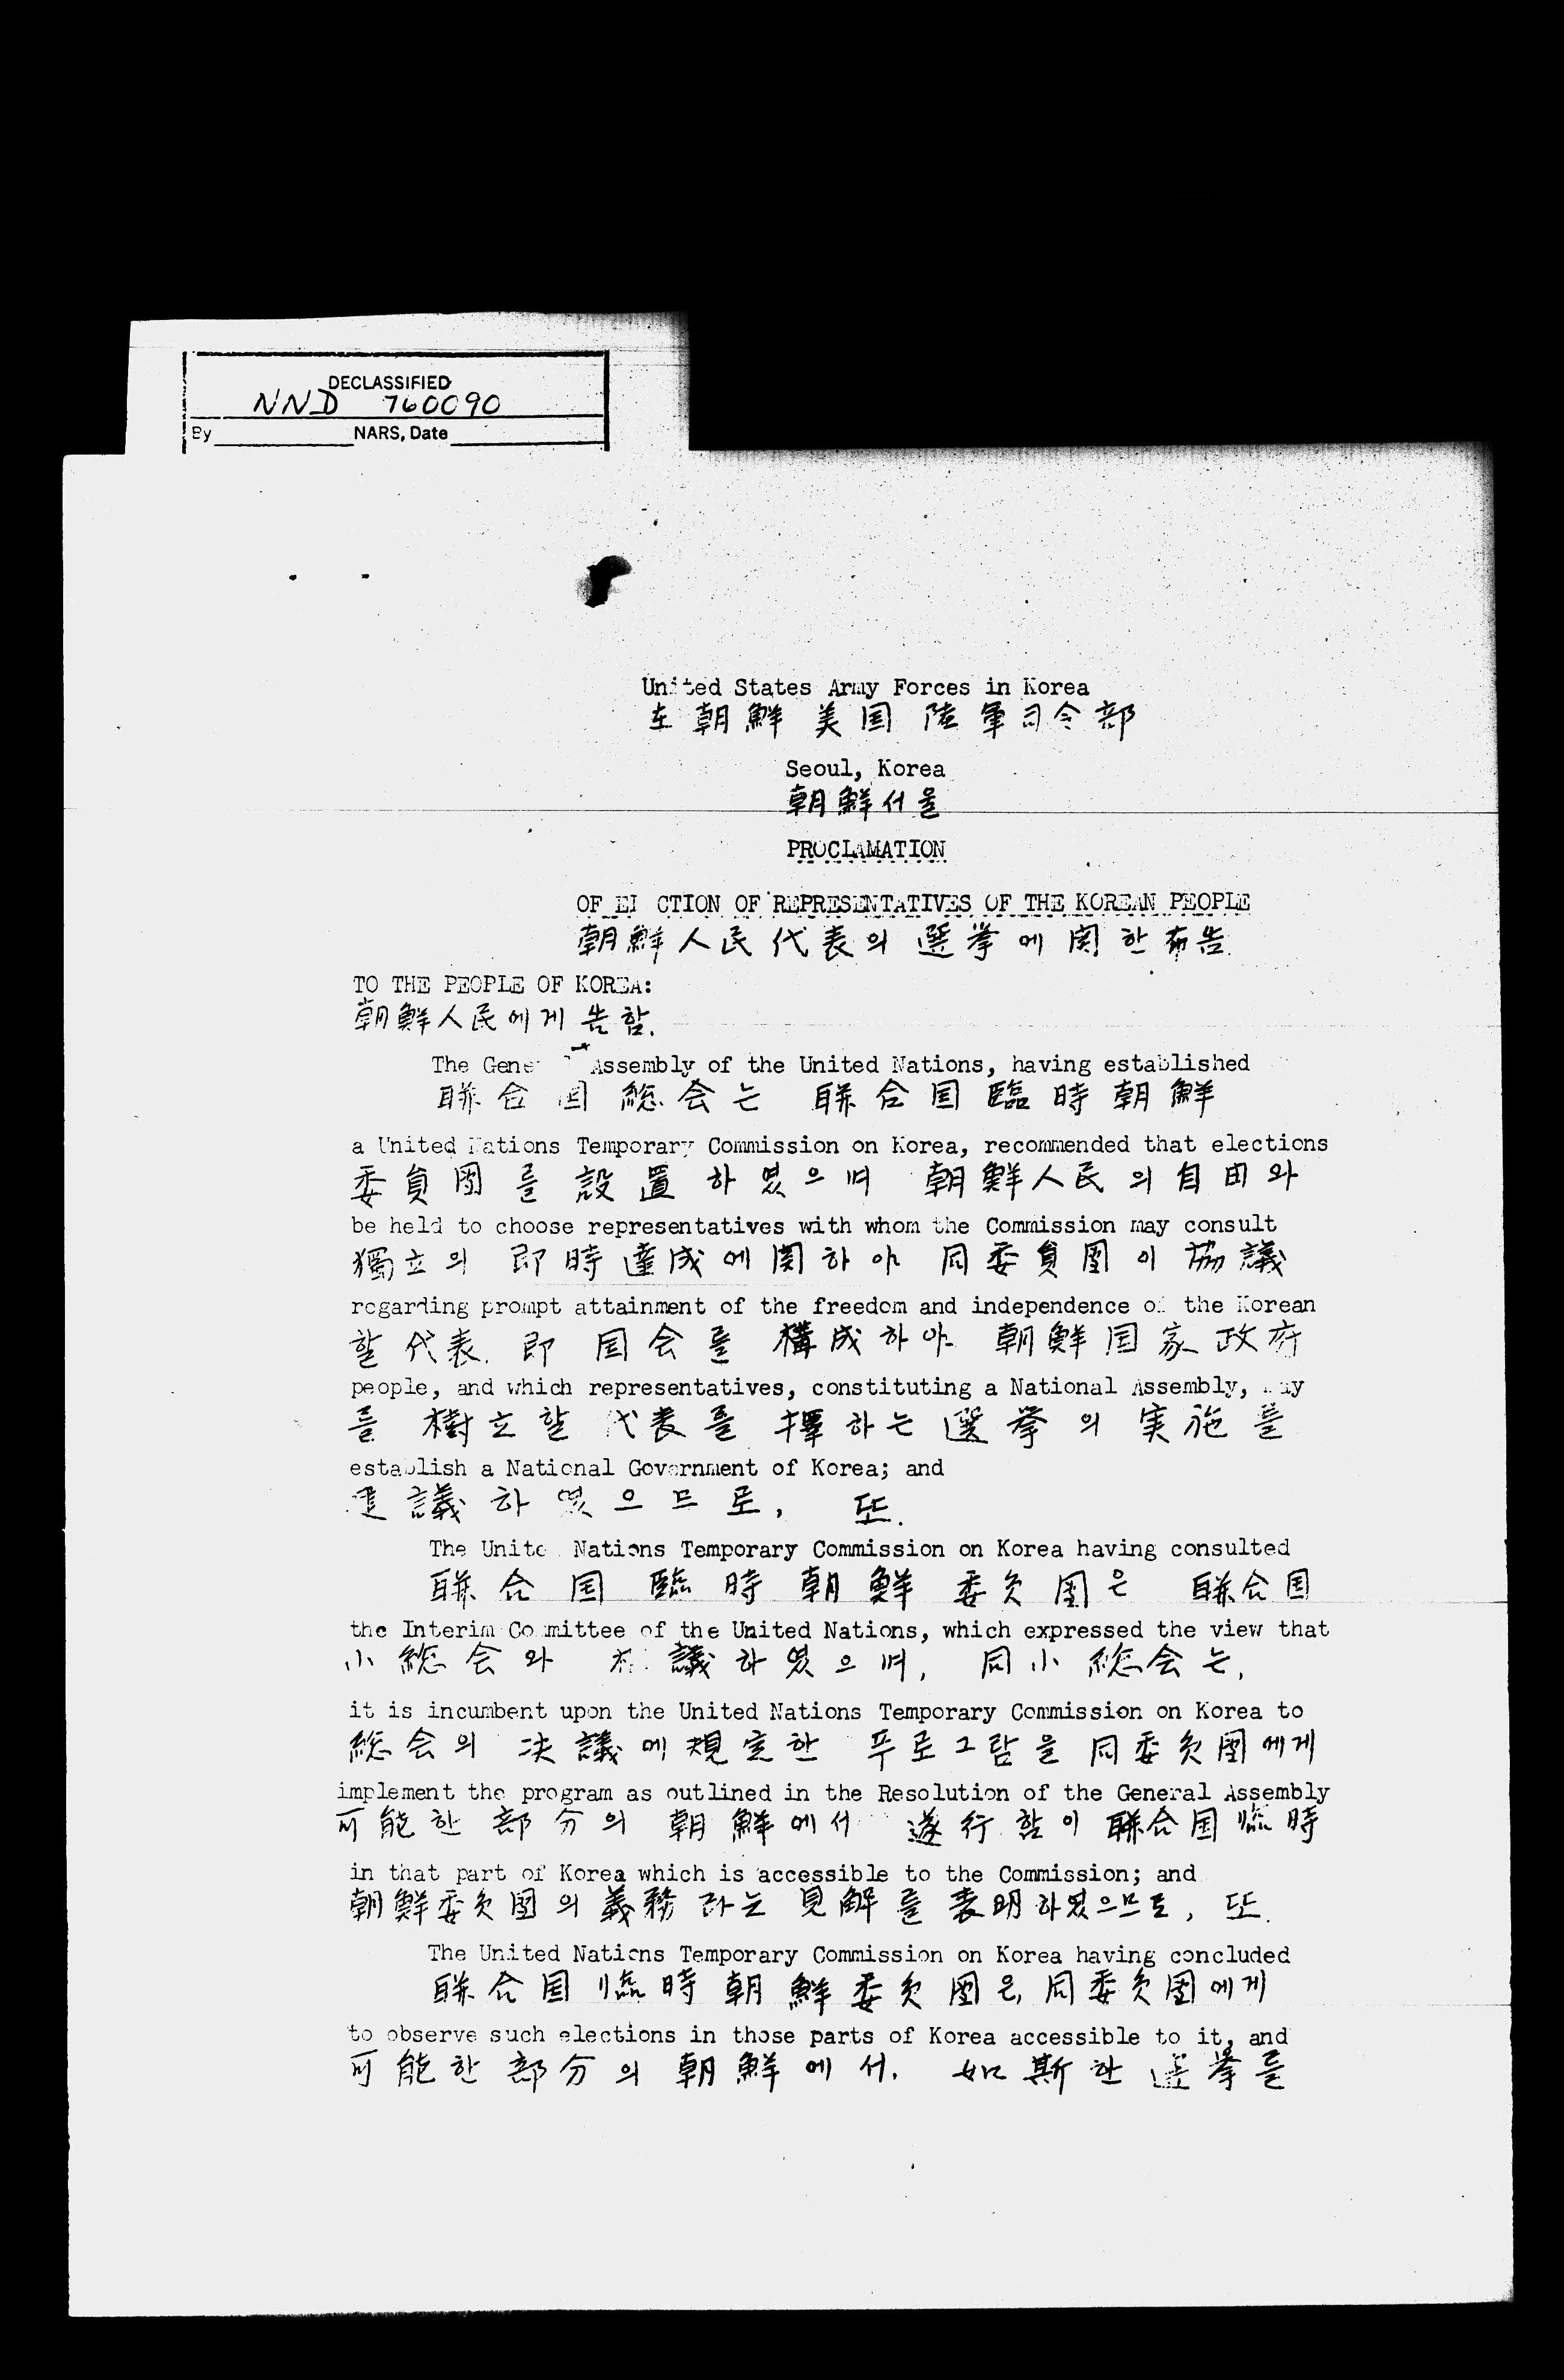 DECLASSIFIED
NND 760090
By NARS, Date
United States Army Forces in Korea
在朝鮮 美国 陸軍司令部
Seoul, Korea
朝鮮서울
PROCLAMATION
OF ELECTION OF REPRESENTATIVES OF THE KOREAN PEOPLE
朝鮮人民代表의 選挙에 関한 布告.
TO THE PEOPLE OF KOREA:
朝鮮人民에게 告함.
The General Assembly of the United Nations, having established
聯合国 総会는 聯合国臨時朝鮮
a United Nations Temporary Commission on Korea, recommended that elections
委員團를 設置하였으며 朝鮮人民의 自由와
be held to choose representatives with whom the Commission may consult
獨立의 即時達成에 関하야 同委員團이 協議
regarding prompt attainment of the freedom and independence of the Korean
할 代表. 即 国会를 構成하야 朝鮮国家政府
people, and which representatives, constituting a National Assembly, may
를 樹立할 代表를 擇하는 選挙의 実施를
establish a National Government of Korea; and
建議하였으므로, 또.
The United Nations Temporary Commission on Korea having consulted
聯合国 臨時 朝鮮 委員團은 聯合国
the Interim Committee of the United Nations, which expressed the view that
小総会와 議하였으며, 同小総会는,
it is incumbent upon the United Nations Temporary Commission on Korea to
総会의 決議에 規定한 푸로그람을 同委員團에게
implement the program as outlined in the Resolution of the General Assembly
可能한 部分의 朝鮮에서 遂行함이 聯合国臨時
in that part of Korea which is accessible to the Commission; and
朝鮮委員團의 義務라는 見解를 表明하였으므로, 또.
The United Nations Temporary Commission on Korea having concluded
聯合国臨時朝鮮委員團은, 同委員團에게
to observe such elections in those parts of Korea accessible to it, and
可能한 部分의 朝鮮에서. 如斯한 選挙를